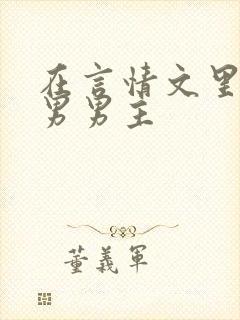 在言情文里
男男主
董義軍